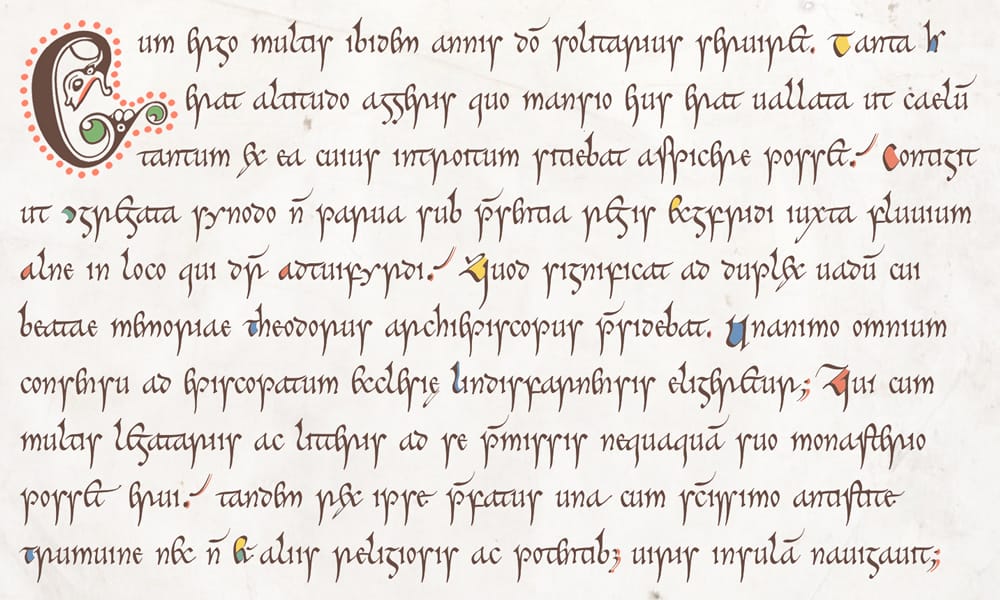 Cum ergo multis ibidem annis dō solitarius seruiret. Tanta h'
erat altitudo aggeris quo mansio eius erat uallata ut caelū
tantum ex ea cuius introitum sitiebat aspicere posset. Contigit
ut ↄgregata synodo n̄ parua sub p̄sentia regis Ecgfridi iuxta fluuium
alne in loco qui dr̄ adtuifyrdi. Quod significat ad duplex uadū cui
beatae memoriae theodorus archiepiscopus p̄sidebat. Unanimo omnium
consensu ad episcopatum ecclesię lindisfarnensis eligeretur; Qui cum
multis legatariis ac litteris ad se p̄missis nequaquā suo monasterio
posset erui. tandem rex ipse p̄fatus una cum sc̄issimo antistite
trumuine nec n̄ et aliis religiosis ac potentib; uiris insulā nauigauit;